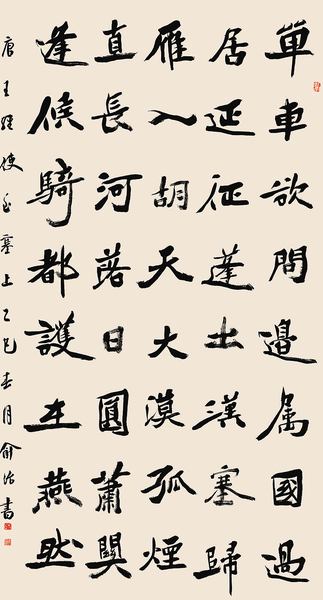 單車欲問邊屬國過
居延征蓬出漢塞歸
雁入胡天大漠孤煙
直長河落日圓蕭關
逢候騎都護在燕然
唐王維使至塞上乙巳春月俞書